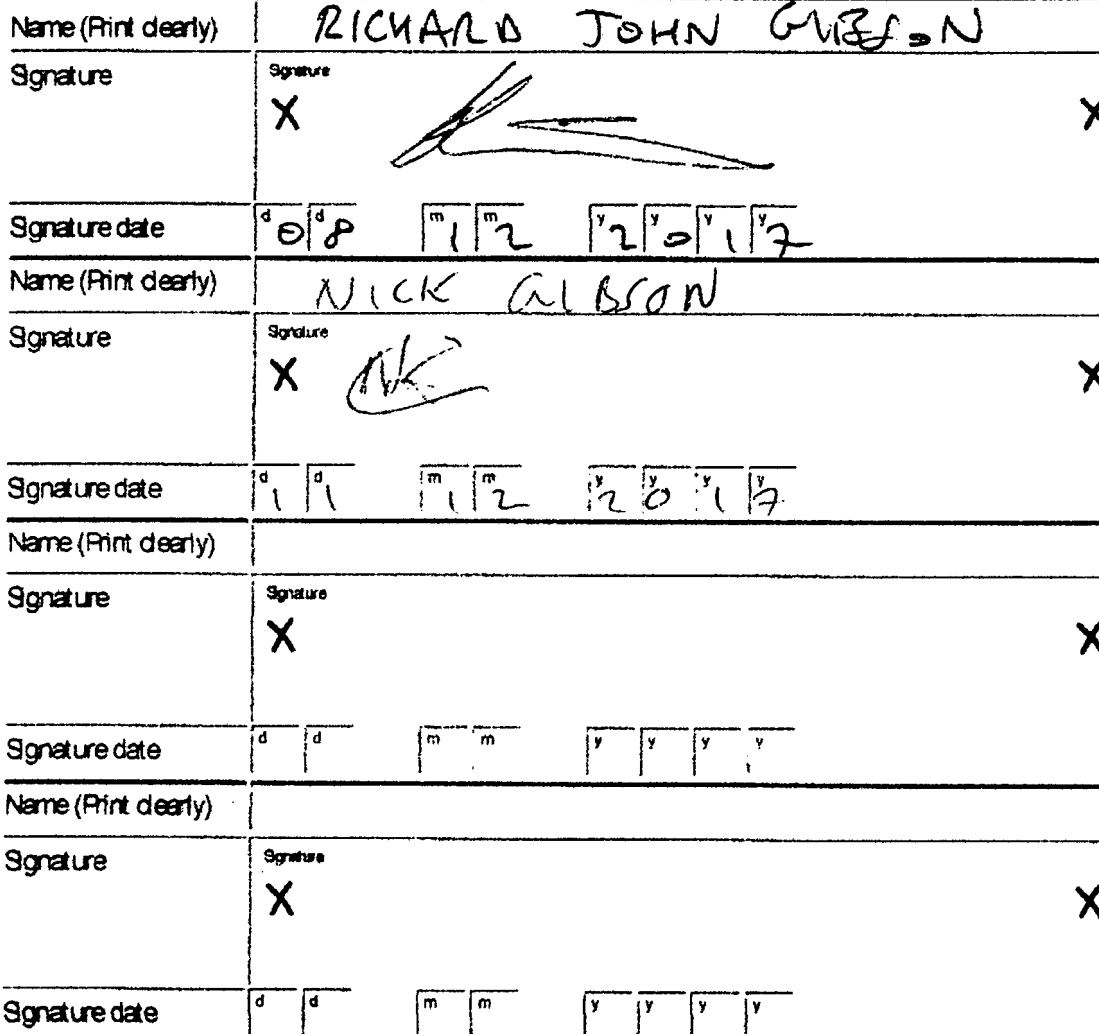 Name (Print clearly) RICHARD JOHN GIBSON
Signature Signature
X X
Signature date d 0 d 8 m 1 m 2 y 2 y 0 y 1 y 7
Name (Print clearly) NICK GIBSON
Signature Signature
X NK X
Signature date d 1 d 1 m 1 m 2 y 2 y 0 y 1 y 7
Name (Print clearly)
Signature Signature
X X
Signature date d d m m y y y y
Name (Print clearly)
Signature Signature
X X
Signature date d d m m y y y y